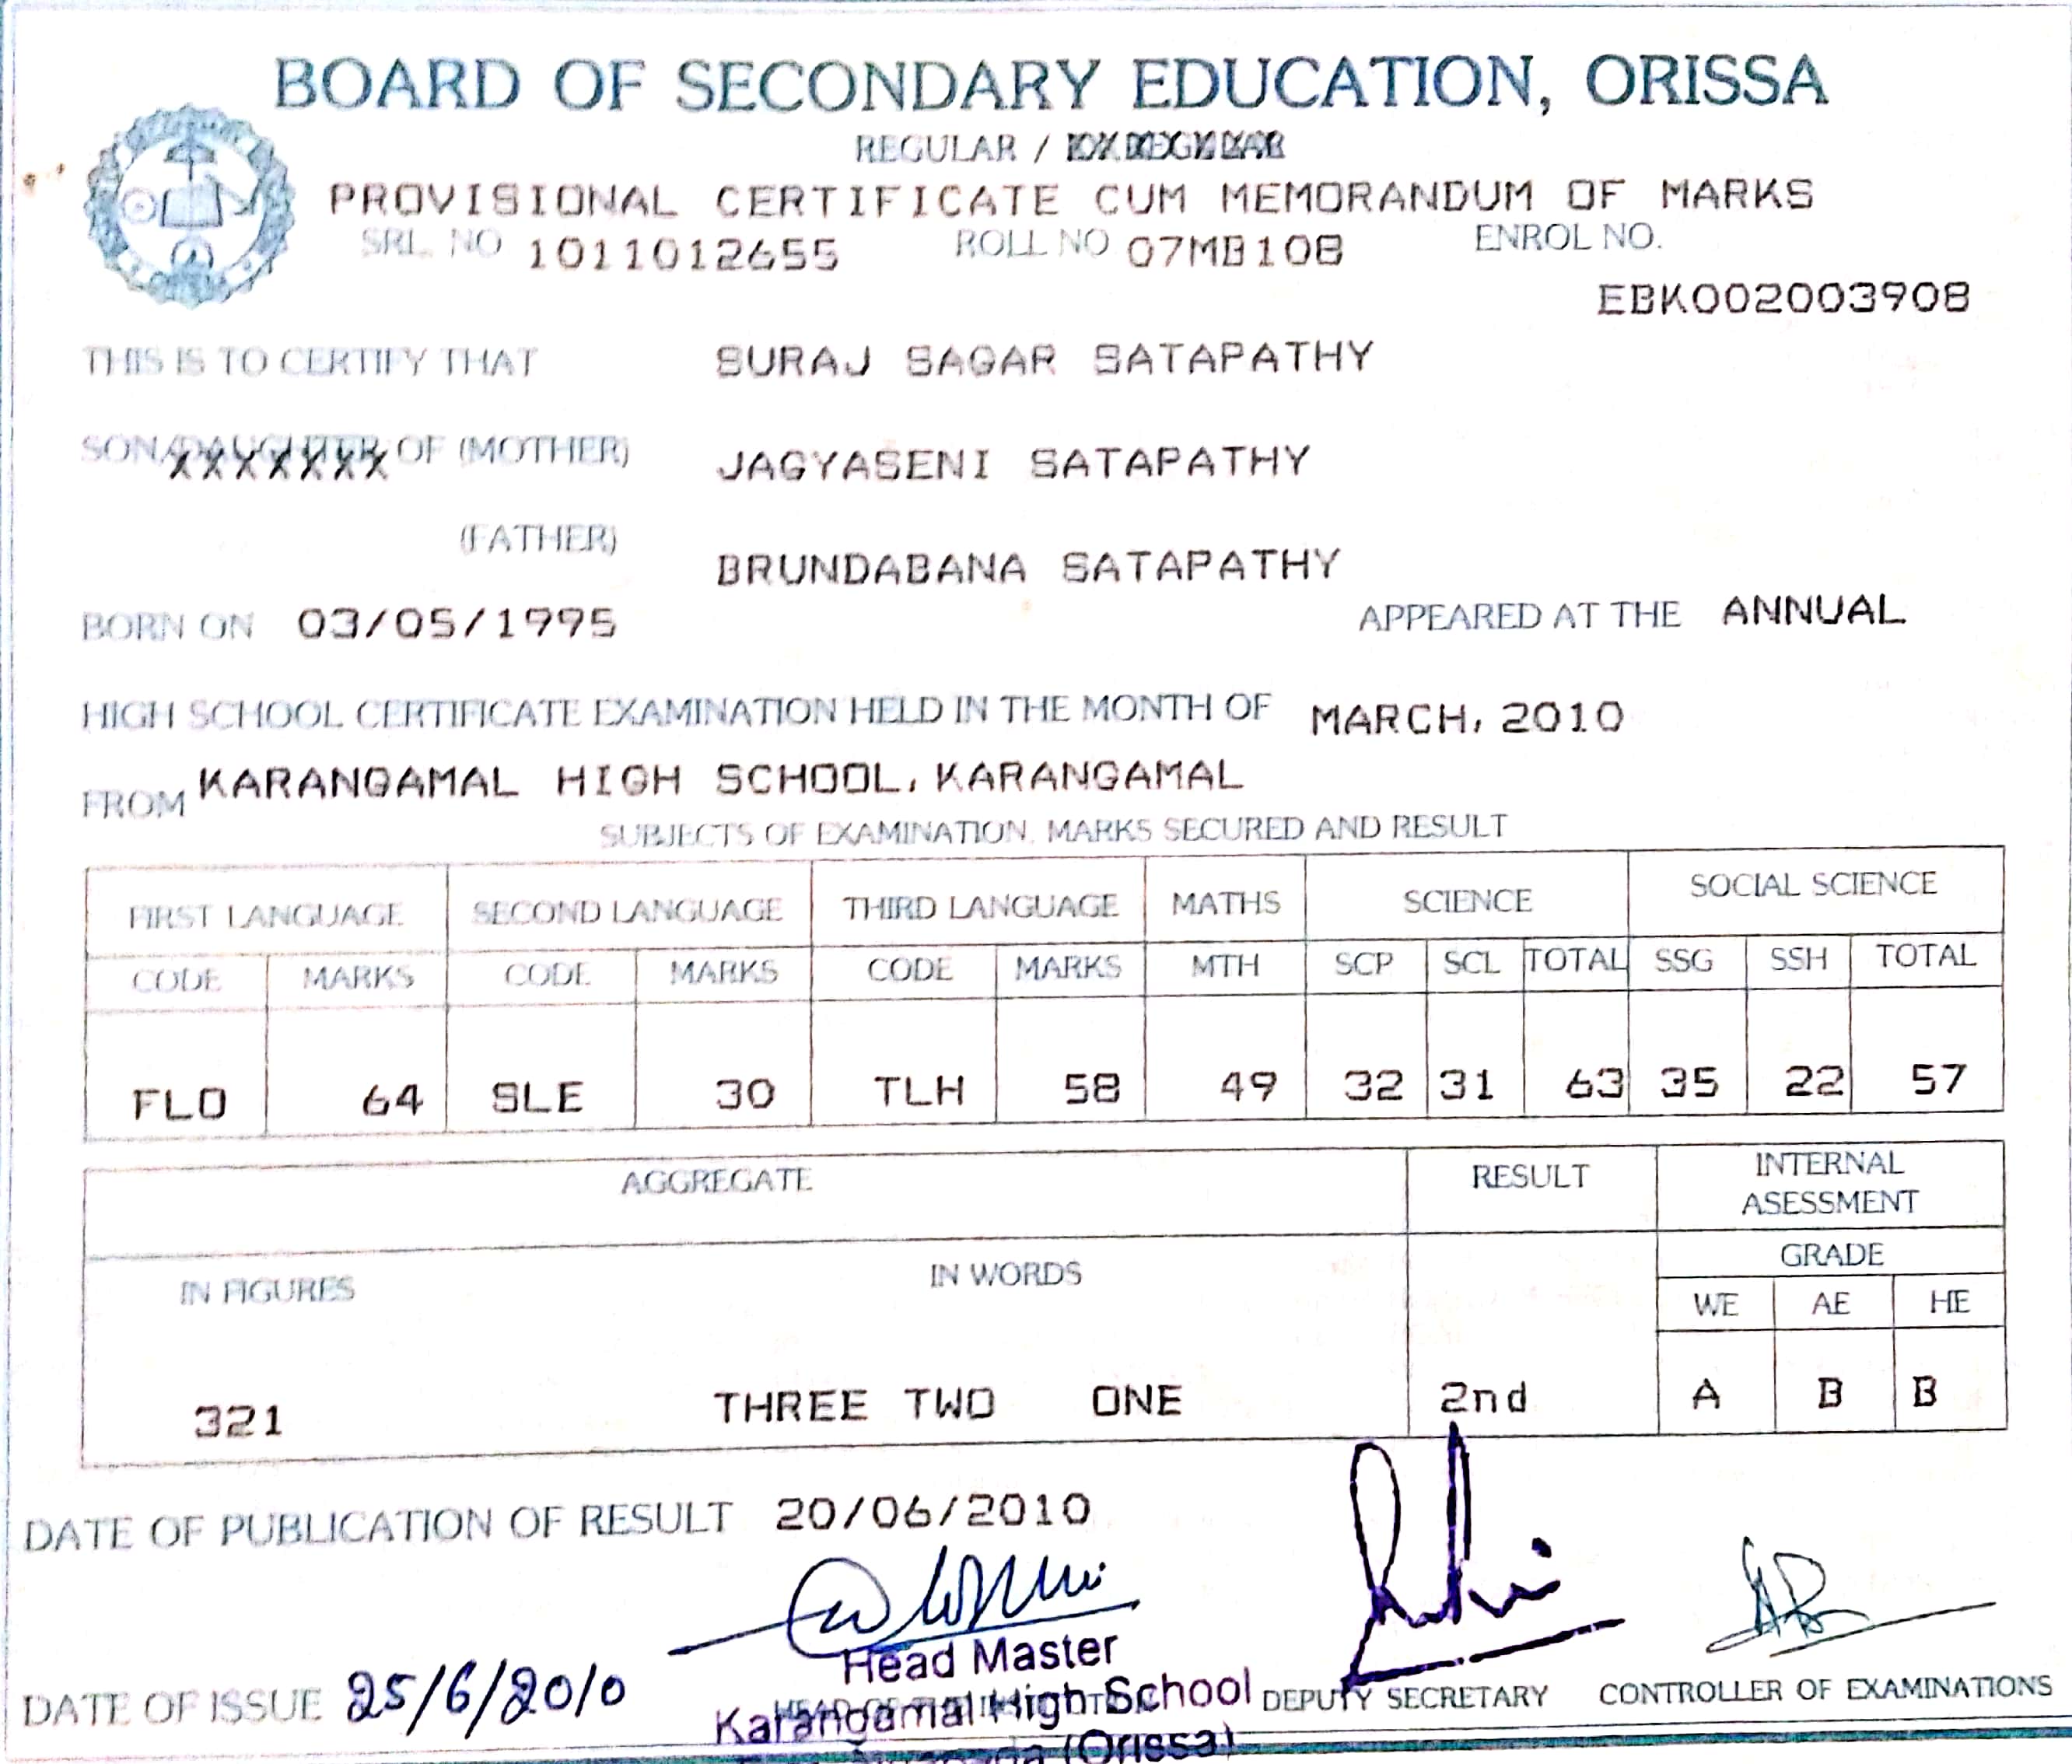 BOARD OF SECONDARY EDUCATION, ORISSA
REGULAR / EX REGULAR
PROVISIONAL CERTIFICATE CUM MEMORANDUM OF MARKS
SRL. NO 1011012655 ROLL NO 07MB108 ENROL NO.
EBK002003908
THIS IS TO CERTIFY THAT SURAJ SAGAR SATAPATHY
SON/DAUGHTER OF (MOTHER) JAGYASENI SATAPATHY
XXXXXXX
(FATHER) BRUNDABANA SATAPATHY
BORN ON 03/05/1995 APPEARED AT THE ANNUAL
HIGH SCHOOL CERTIFICATE EXAMINATION HELD IN THE MONTH OF MARCH, 2010
FROM KARANGAMAL HIGH SCHOOL, KARANGAMAL
SUBJECTS OF EXAMINATION, MARKS SECURED AND RESULT
FIRST LANGUAGE SECOND LANGUAGE THIRD LANGUAGE MATHS SCIENCE SOCIAL SCIENCE
CODE MARKS CODE MARKS CODE MARKS MTH SCP SCL TOTAL SSG SSH TOTAL
FLO 64 SLE 30 TLH 58 49 32 31 63 35 22 57
AGGREGATE RESULT INTERNAL ASESSMENT
GRADE
IN FIGURES IN WORDS WE AE HE
321 THREE TWO ONE 2nd A B B
DATE OF PUBLICATION OF RESULT 20/06/2010
Head Master
DATE OF ISSUE 25/6/2010 Karangamal High School DEPUTY SECRETARY CONTROLLER OF EXAMINATIONS
(Orissa)